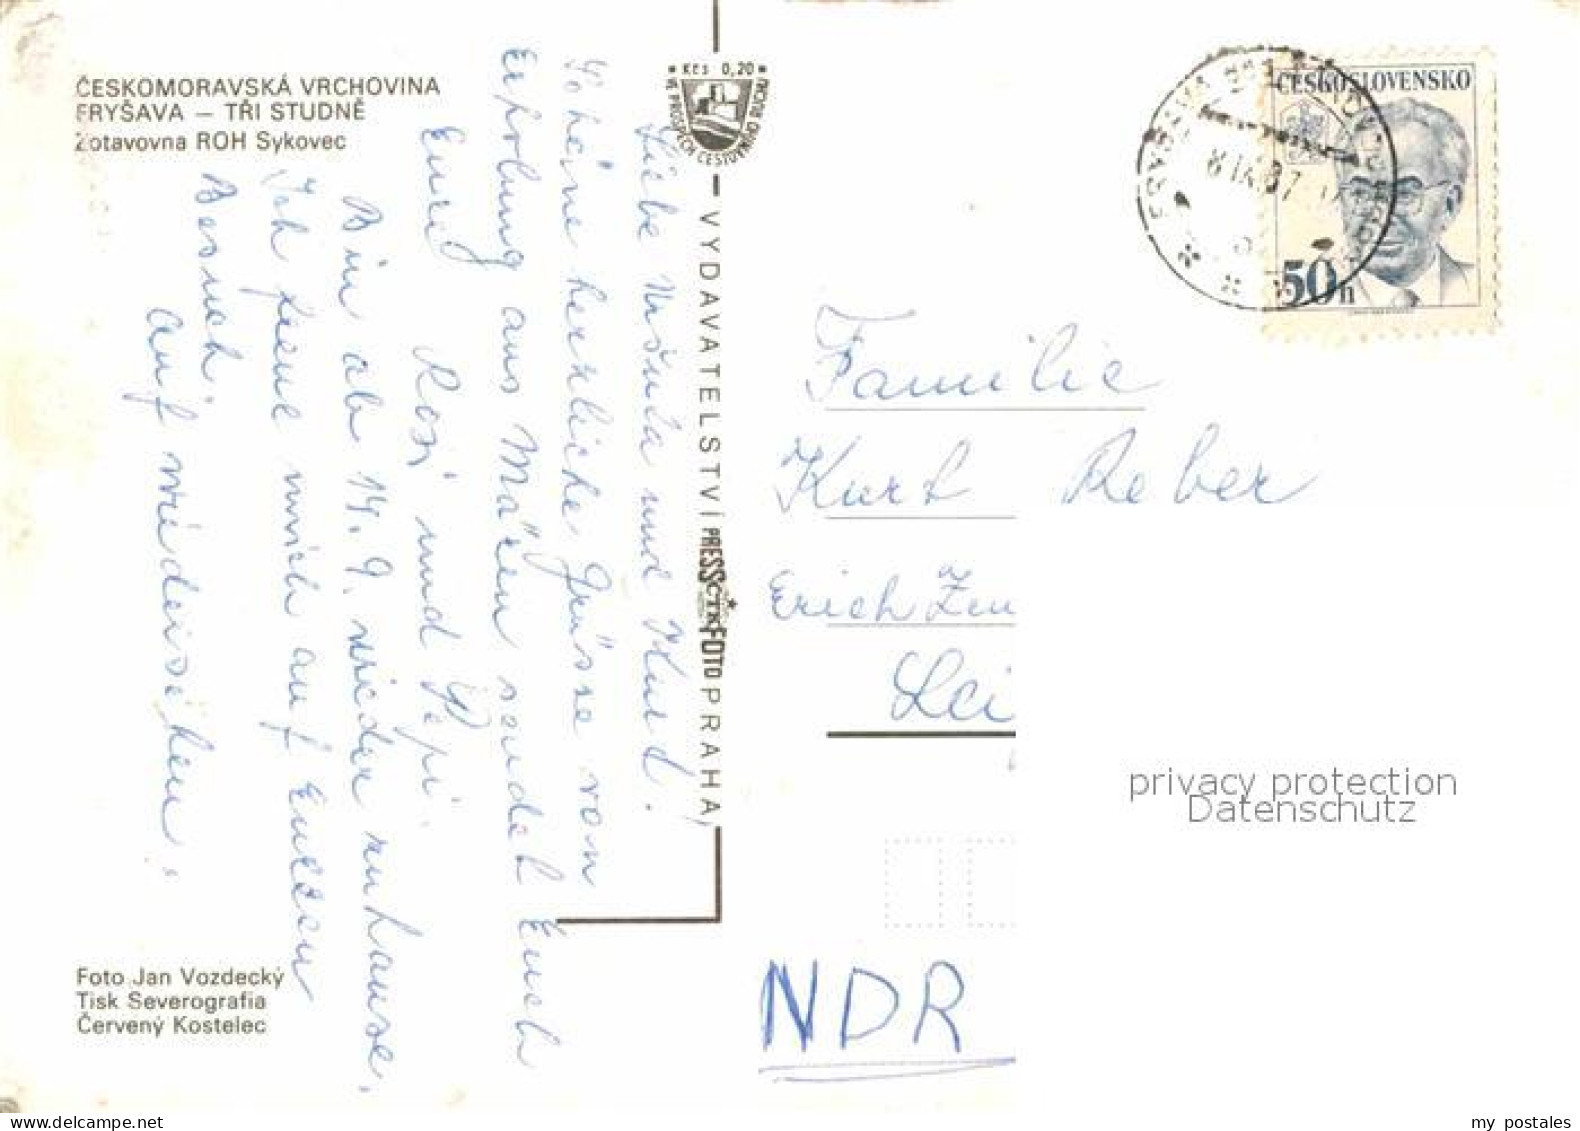 ČESKOMORAVSKÁ VRCHOVINA
FRYŠAVA — TŘI STUDNĚ
Zotavovna ROH Sykovec
Kčs 0,20
VE PROSPĚCH CESTOVNÍHO RUCHU
ČESKOSLOVENSKO
50h
Liebe Uršula und Kurt.
Schöne herzliche Grüsse von
Erholung aus Mären sendet Euch
Eure
Rosi und Pepi.
Bin ab 14. 9. wieder zuhause.
Ich freue mich auf Eueren
Besuch.
Auf wiedersehen.
VYDAVATELSTVÍ PRESSFOTO PRAHA
Familie
Kurt Reber
Erich Zeu
Lei
NDR
privacy protection
Datenschutz
Foto Jan Vozdecký
Tisk Severografia
Červený Kostelec
my postales